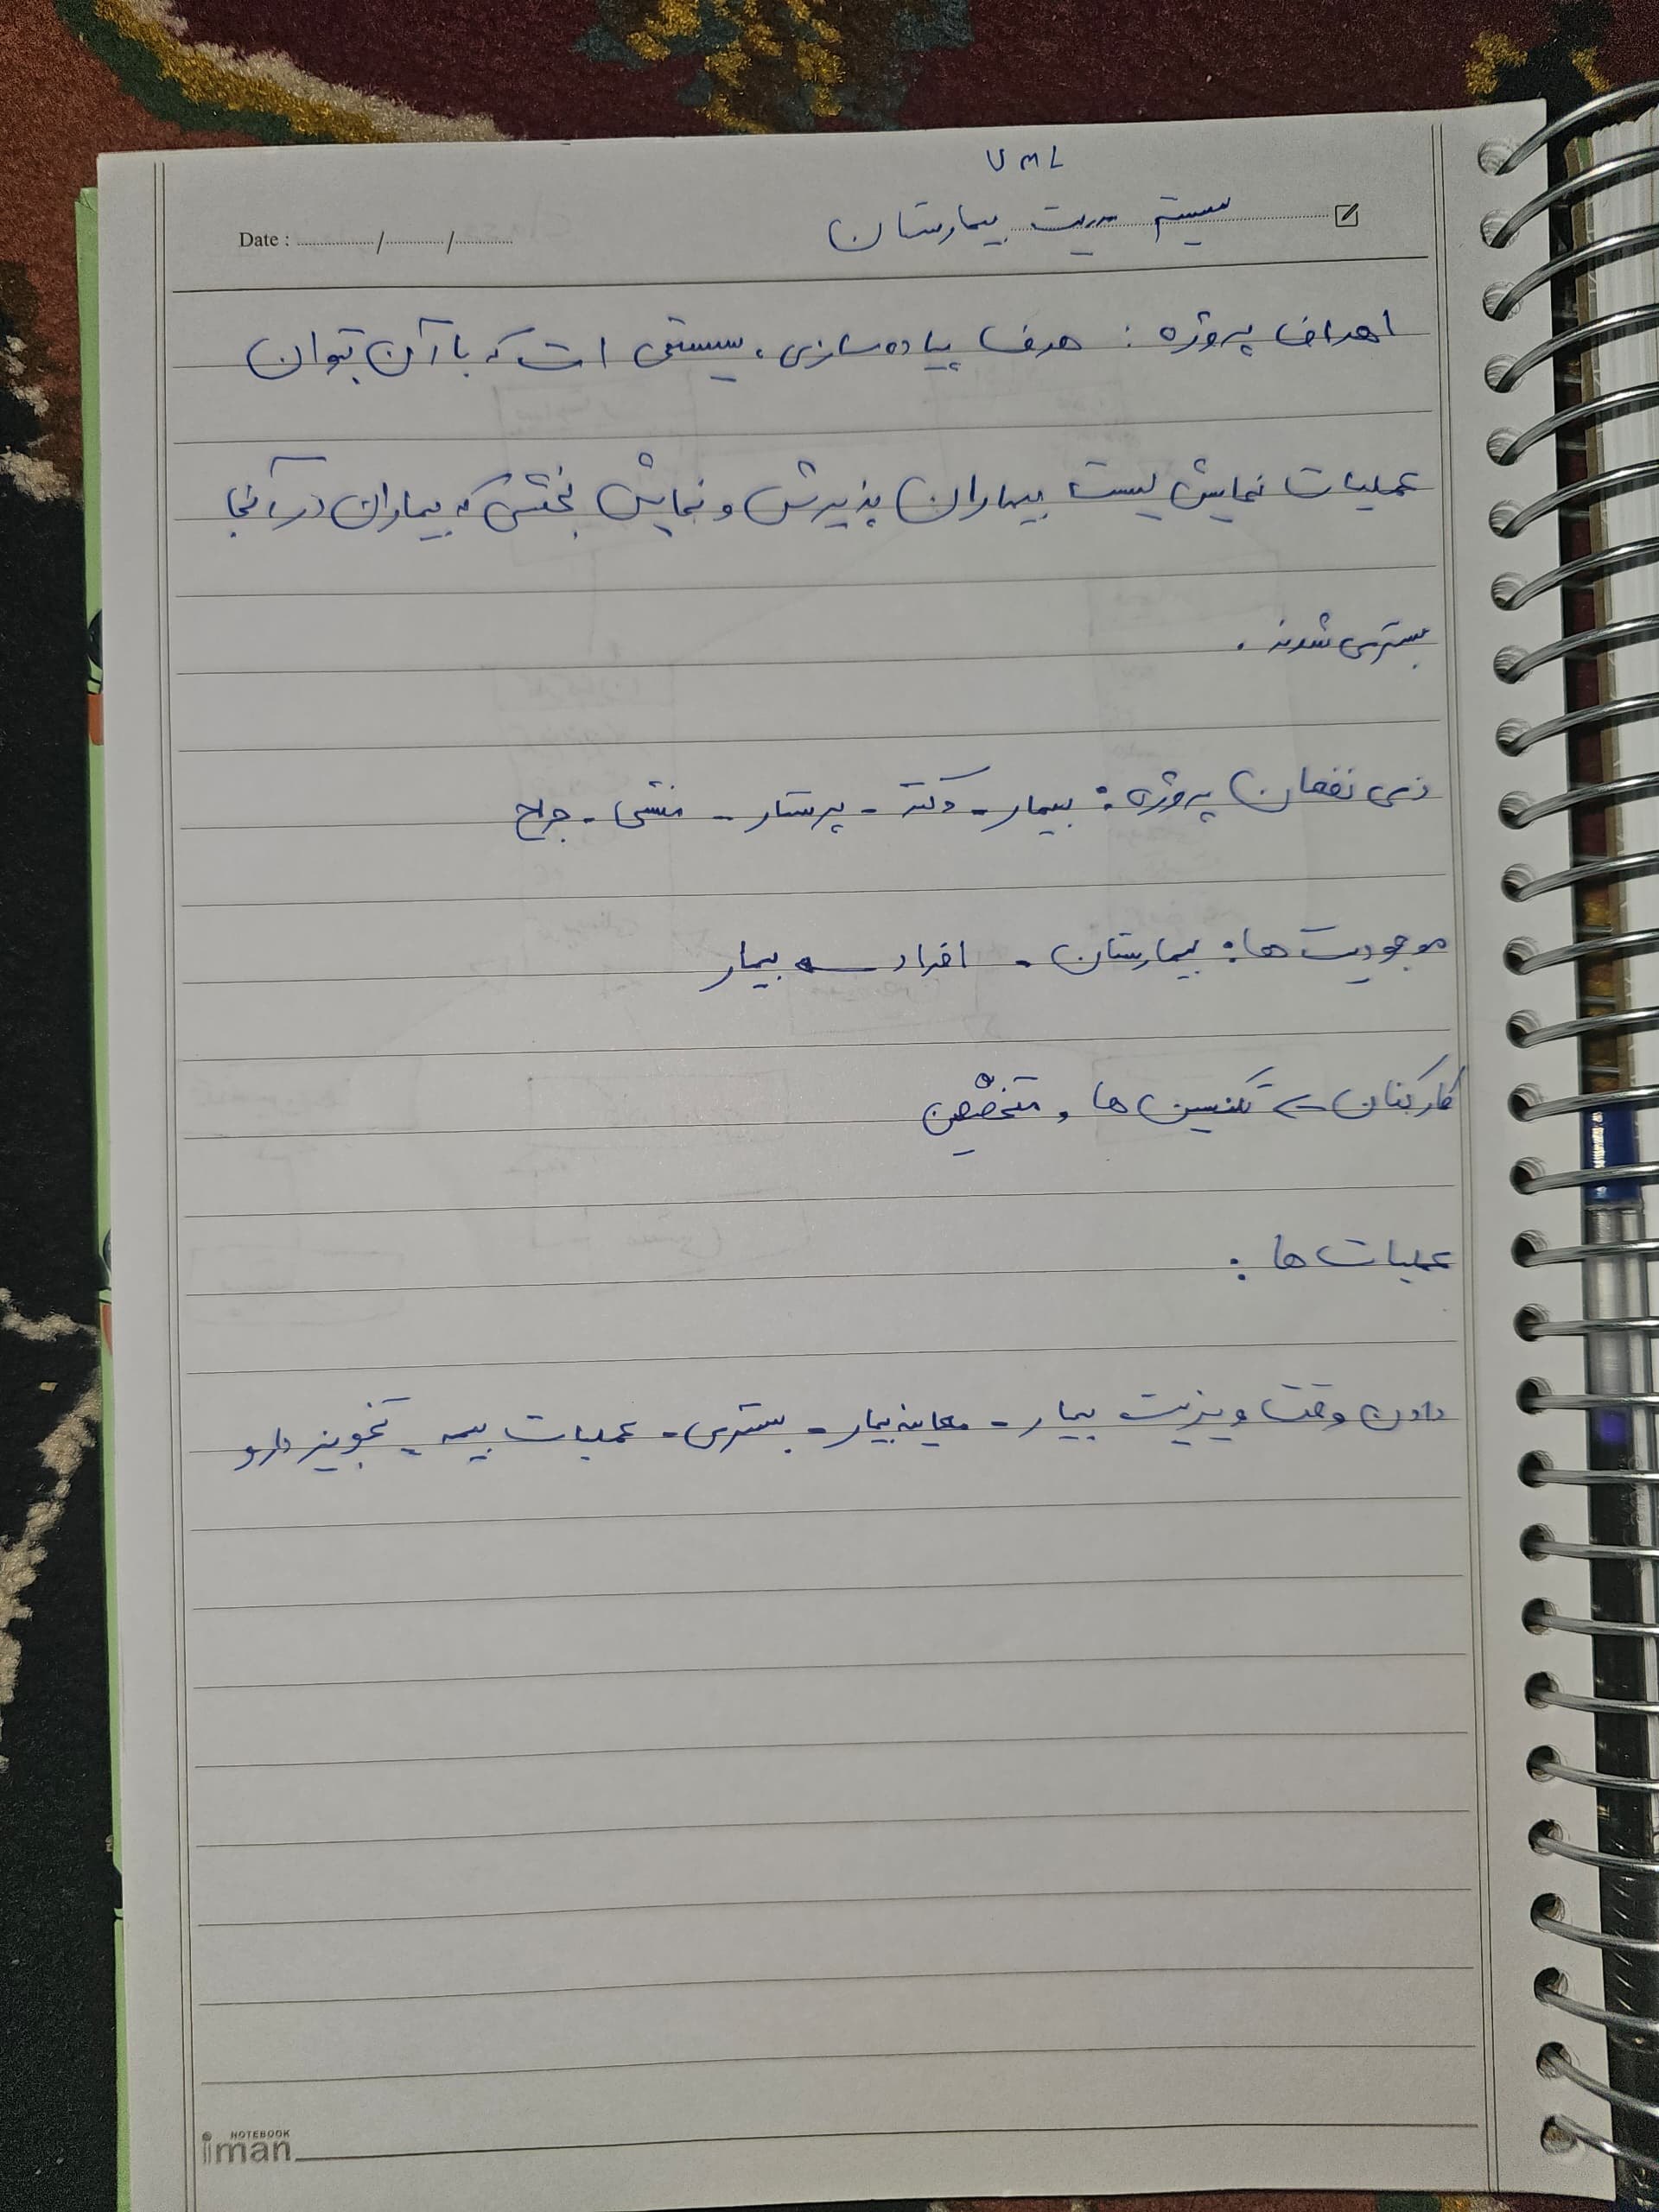 UML
سیستم مدیریت بیمارستان
Date : ........../........../..........
اهداف پروژه : هدف پیاده سازی، سیستمی است که با آن بتوان
عملیات نمایش لیست بیماران پذیرش و نمایش بخشی که بیماران در آنجا
بستری شدند .
ذی نفعان پروژه : بیمار - دکتر - پرستار - منشی - جراح
موجودیت ها : بیمارستان - افراد → بیمار
کارکنان → تکنسین ها و متخصصین
عملیات ها :
دادن وقت ویزیت بیمار - معاینه بیمار - بستری - عملیات بیمه - تجویز دارو
NOTEBOOK
iman